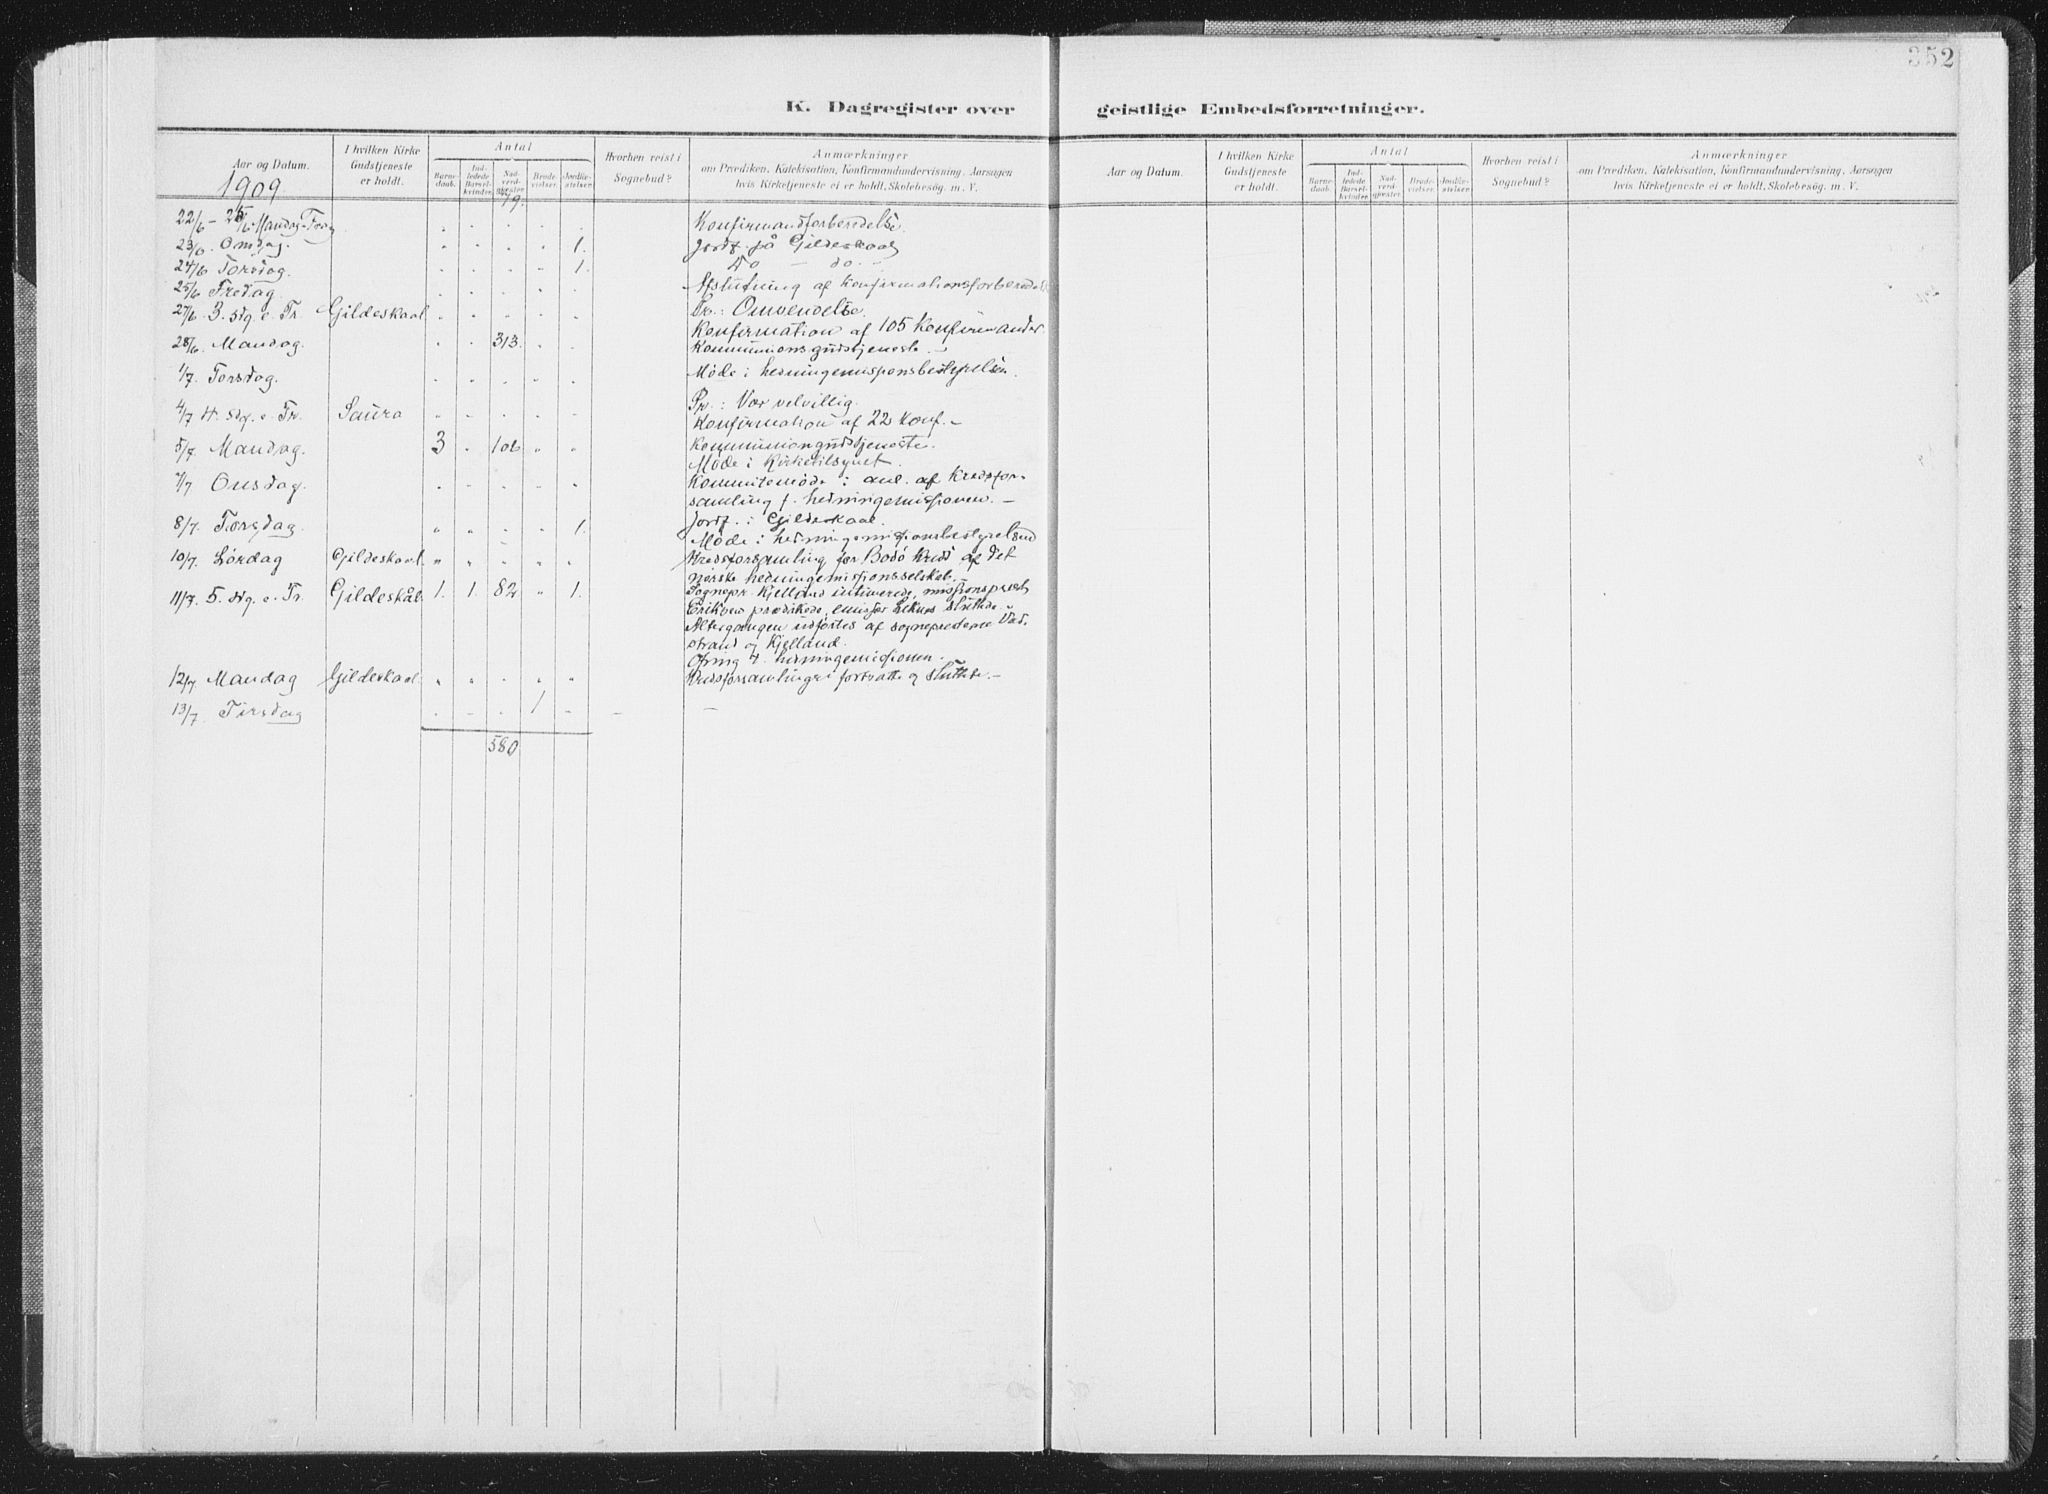 352
K. Dagregister over geistlige Embedsforretninger.
Aar og Datum. I hvilken Kirke Gudstjeneste er holdt. Antal Barnedaab. Indledede Barselkvinder. Nadverdgjester. Brudevielser. Jordfæstelser. Hvorhen reist i Sognebud? Anmærkninger om Prædiken, Katekisation, Konfirmandundervisning, Aarsagen hvis Kirketjeneste ei er holdt, Skolebesøg. m. V.
1909. 79.
22/6 - 25/6. Mandag-Fredag Konfirmandforberedelse.
23/6. Onsdag. 1. Jordf. på Gildeskaal
24/6 Torsdag. 1. Do - do. -
25/6 Fredag Afslutning af Konfirmationsforberedelse
27/6. 3. Sdg. e. Tr. Gildeskaal. Pr.: Omvendelse.
Konfirmation af 105 Konfirmander.
28/6. Mandag. 313. Kommunionsgudstjeneste. -
1/7 Torsdag. Møde i hedningemissionsbestyrelsen.
4/7 4. Sdg. e. Tr. Saura Pr.: Vær velvillig.
Konfirmation af 22 Konf. -
5/7. Mandag. 3 106 Kommuniongudstjeneste.
Møde i Kirketilsynet.
7/7 Onsdag. Kommitemøde i anl. af Kredsfor-
samling f. hedningemissionen. -
8/7. Torsdag. 1. Jordf. i Gildeskaal.
Møde i hedningemissionsbestyrelsen
10/7. Lørdag Gildeskaal. Kredsforsamling for Bodø Kreds af det
norske hedningemissionsselskab.
11/7. 5. Sdg. e. Tr. Gildeskål. 1. 1. 82 1. Sognepr. Kjelland intimerede, missionsprest
Eriksen prædikede, emissær Leknes sluttede.
Altergangen udførtes af sogneprestene Vad-
strand og Kjelland.
Ofring t. hedningemissionen.
12/7 Mandag Gildeskaal. Kredsforsamlingen fortsatte og sluttede. -
13/7. Tirsdag 1
580
Aar og Datum. I hvilken Kirke Gudstjeneste er holdt. Antal Barnedaab. Indledede Barselkvinder. Nadverdgjester. Brudevielser. Jordfæstelser. Hvorhen reist i Sognebud? Anmærkninger om Prædiken, Katekisation, Konfirmandundervisning, Aarsagen hvis Kirketjeneste ei er holdt, Skolebesøg. m. V.